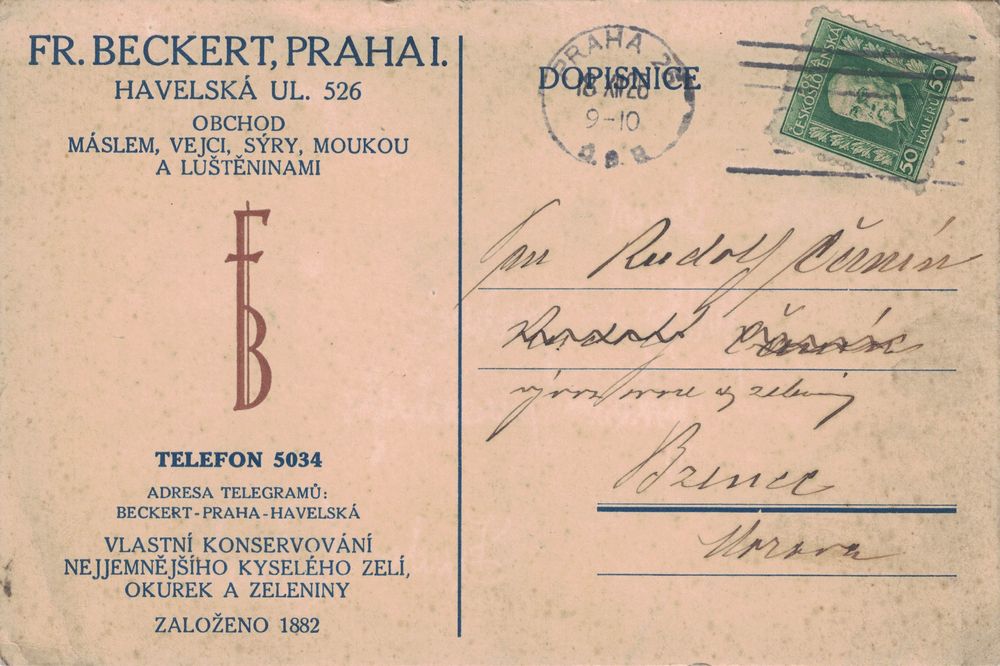 FR. BECKERT, PRAHA I.
HAVELSKÁ UL. 526
OBCHOD
MÁSLEM, VEJCI, SÝRY, MOUKOU
A LUŠTĚNINAMI
FB
TELEFON 5034
ADRESA TELEGRAMŮ:
BECKERT-PRAHA-HAVELSKÁ
VLASTNÍ KONSERVOVÁNÍ
NEJJEMNĚJŠÍHO KYSELÉHO ZELÍ,
OKUREK A ZELENINY
ZALOŽENO 1882
DOPISNICE
PRAHA 25
18 XII 26
9-10
ČESKOSLOVENSKÁ
50 HALÉŘŮ 50
Pan Rudolf
Rudolf
zeleniny
Bzenec
Morava